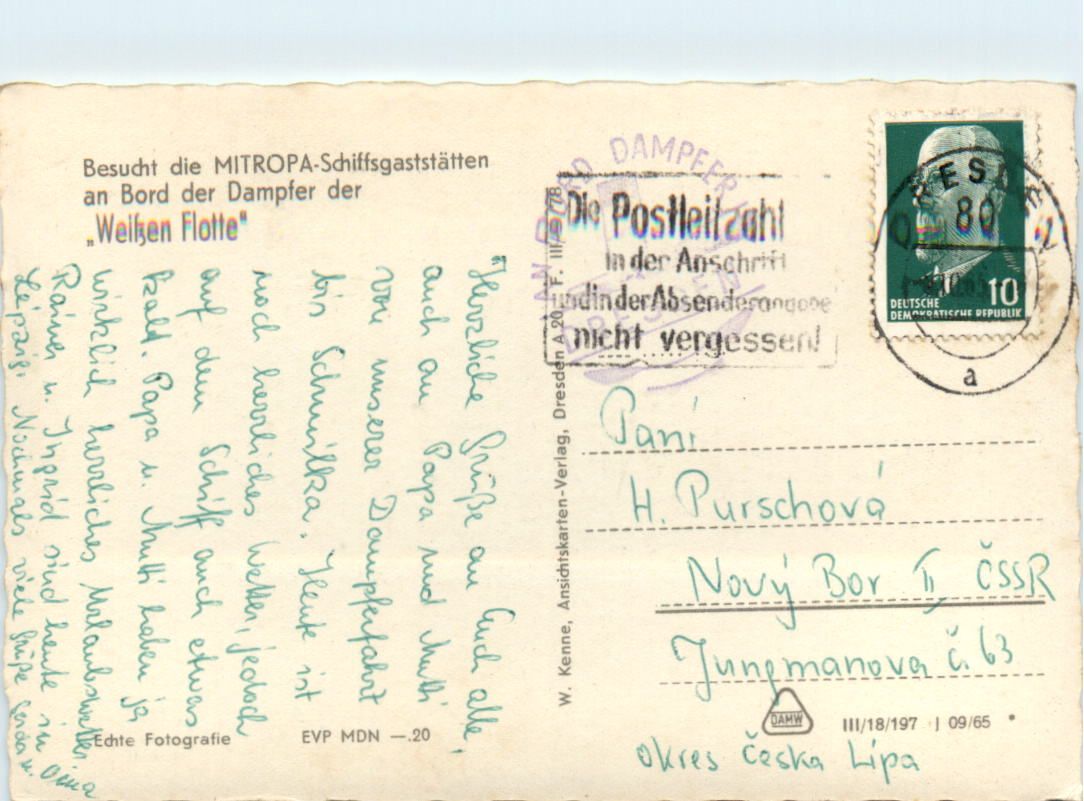 Besucht die MITROPA-Schiffsgaststätten
an Bord der Dampfer der
„Weißen Flotte"
Herzliche Grüße an Euch alle,
auch an Papa und Mutti
von unserer Dampferfahrt
bis Schmilka. Heute ist
noch herrliches Wetter, jedoch
auf dem Schiff auch etwas
kalt. Papa u. Mutti haben ja
wirklich herrliches Urlaubswetter.
Rainer u. Ingrid sind heute in
Leipzig. Nochmals viele Grüße u. Oma
Echte Fotografie
EVP MDN —.20
W. Kenne, Ansichtskarten-Verlag, Dresden A 20 F. III
AN BORD DAMPFER
DRESDEN
Die Postleitzahl
in der Anschrift
und in der Absenderangabe
nicht vergessen!
DRESDEN
80
a
10
DEUTSCHE
DEMOKRATISCHE REPUBLIK
Paní
H. Purschová
Nový Bor II, ČSSR
Jungmanova č. 63
DAMW
III/18/197 J 09/65
okres Česka Lípa